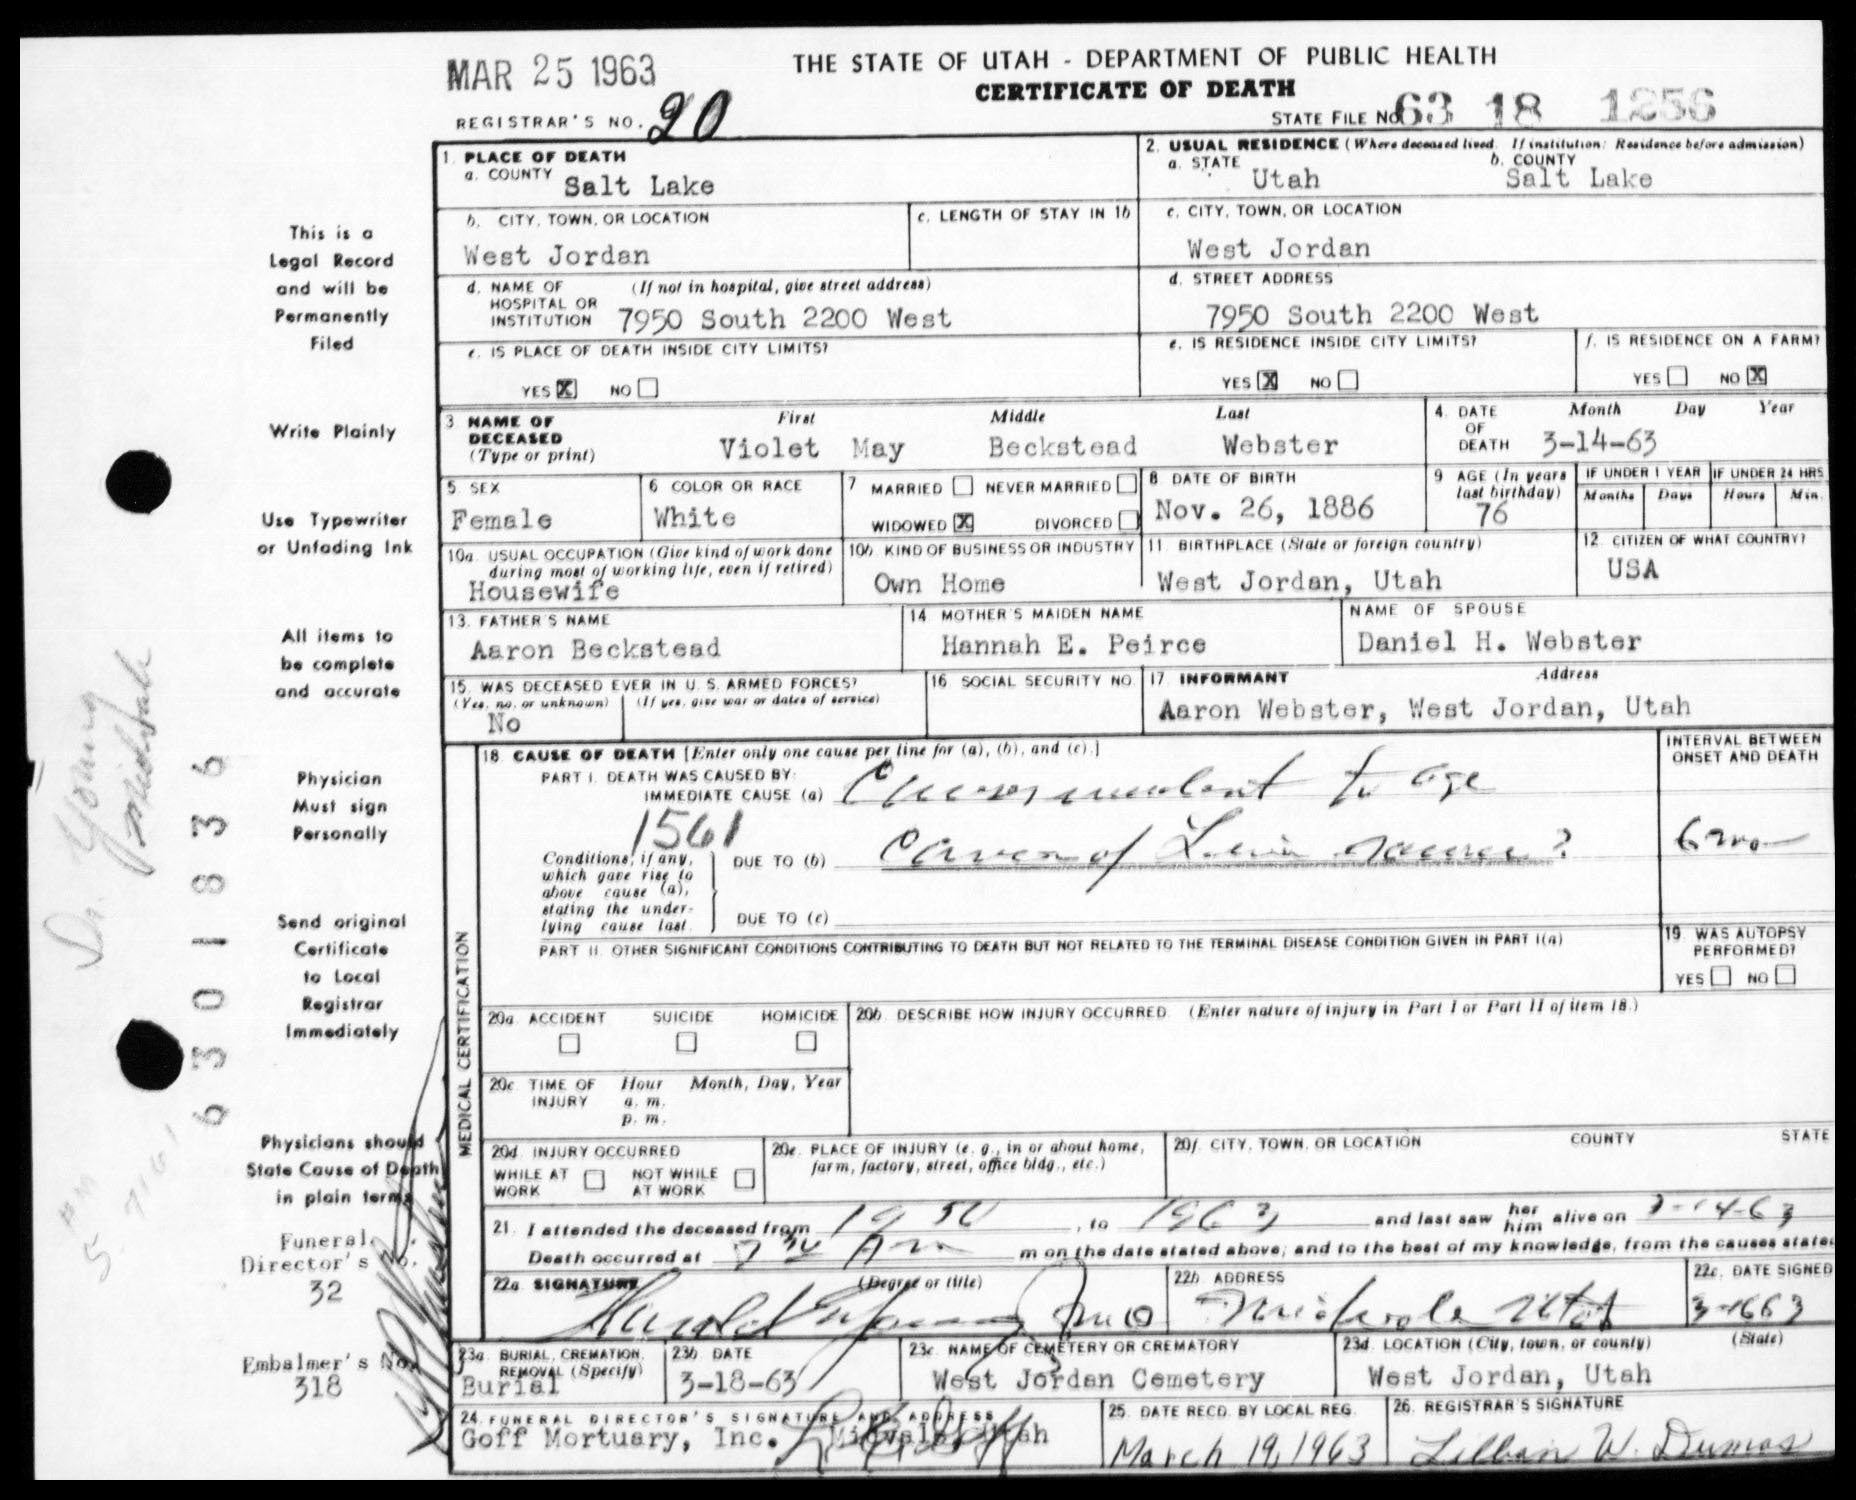 MAR 25 1963
THE STATE OF UTAH - DEPARTMENT OF PUBLIC HEALTH
CERTIFICATE OF DEATH
REGISTRAR'S NO. 20
STATE FILE NO. 63 18 1256
1. PLACE OF DEATH
a. COUNTY Salt Lake
2. USUAL RESIDENCE (Where deceased lived. If institution: Residence before admission)
a. STATE Utah b. COUNTY Salt Lake
b. CITY, TOWN, OR LOCATION
West Jordan
c. LENGTH OF STAY IN 1b
c. CITY, TOWN, OR LOCATION
West Jordan
d. NAME OF HOSPITAL OR INSTITUTION (If not in hospital, give street address)
7950 South 2200 West
d. STREET ADDRESS
7950 South 2200 West
e. IS PLACE OF DEATH INSIDE CITY LIMITS?
YES X NO
e. IS RESIDENCE INSIDE CITY LIMITS?
YES X NO
f. IS RESIDENCE ON A FARM?
YES NO X
3. NAME OF DECEASED (Type or print)
First Middle Last
Violet May Beckstead Webster
4. DATE OF DEATH Month Day Year
3-14-63
5. SEX
Female
6 COLOR OR RACE
White
7 MARRIED NEVER MARRIED
WIDOWED X DIVORCED
8 DATE OF BIRTH
Nov. 26, 1886
9 AGE (In years last birthday)
76
IF UNDER 1 YEAR
Months Days
IF UNDER 24 HRS.
Hours Min.
10a. USUAL OCCUPATION (Give kind of work done during most of working life, even if retired)
Housewife
10b. KIND OF BUSINESS OR INDUSTRY
Own Home
11. BIRTHPLACE (State or foreign country)
West Jordan, Utah
12. CITIZEN OF WHAT COUNTRY?
USA
13. FATHER'S NAME
Aaron Beckstead
14 MOTHER'S MAIDEN NAME
Hannah E. Peirce
NAME OF SPOUSE
Daniel H. Webster
15. WAS DECEASED EVER IN U. S. ARMED FORCES?
(Yes, no, or unknown) (If yes, give war or dates of service)
No
16. SOCIAL SECURITY NO.
17. INFORMANT Address
Aaron Webster, West Jordan, Utah
MEDICAL CERTIFICATION
18. CAUSE OF DEATH [Enter only one cause per line for (a), (b), and (c).]
INTERVAL BETWEEN ONSET AND DEATH
PART I. DEATH WAS CAUSED BY:
IMMEDIATE CAUSE (a) to age
1561
Conditions, if any, which gave rise to above cause (a), stating the underlying cause last.
DUE TO (b) of ?
6 mo
DUE TO (c)
PART II. OTHER SIGNIFICANT CONDITIONS CONTRIBUTING TO DEATH BUT NOT RELATED TO THE TERMINAL DISEASE CONDITION GIVEN IN PART I(a)
19. WAS AUTOPSY PERFORMED?
YES NO
20a. ACCIDENT SUICIDE HOMICIDE
20b. DESCRIBE HOW INJURY OCCURRED. (Enter nature of injury in Part I or Part II of item 18.)
20c. TIME OF INJURY Hour Month, Day, Year
a. m.
p. m.
20d. INJURY OCCURRED
WHILE AT WORK NOT WHILE AT WORK
20e. PLACE OF INJURY (e. g., in or about home, farm, factory, street, office bldg., etc.)
20f. CITY, TOWN, OR LOCATION COUNTY STATE
21. I attended the deceased from , to 1963 and last saw her him alive on 3-14-63
Death occurred at m on the date stated above; and to the best of my knowledge, from the causes stated
22a. SIGNATURE (Degree or title)
Harold Young MD
22b. ADDRESS
Midvale Utah
22c. DATE SIGNED
3-1663
23a. BURIAL, CREMATION, REMOVAL (Specify)
Burial
23b. DATE
3-18-63
23c. NAME OF CEMETERY OR CREMATORY
West Jordan Cemetery
23d. LOCATION (City, town, or county) (State)
West Jordan, Utah
24. FUNERAL DIRECTOR'S SIGNATURE AND ADDRESS
Goff Mortuary, Inc. Midvale, Utah
25. DATE RECD. BY LOCAL REG.
March 19, 1963
26. REGISTRAR'S SIGNATURE
Lillian W. Dumas
This is a
Legal Record
and will be
Permanently
Filed
Write Plainly
Use Typewriter
or Unfading Ink
All items to
be complete
and accurate
Physician
Must sign
Personally
Send original
Certificate
to Local
Registrar
Immediately
Physicians should
State Cause of Death
in plain terms
Funeral
Director's No.
32
Embalmer's No.
318
Dr. Young
Midvale
6301836
5 PM